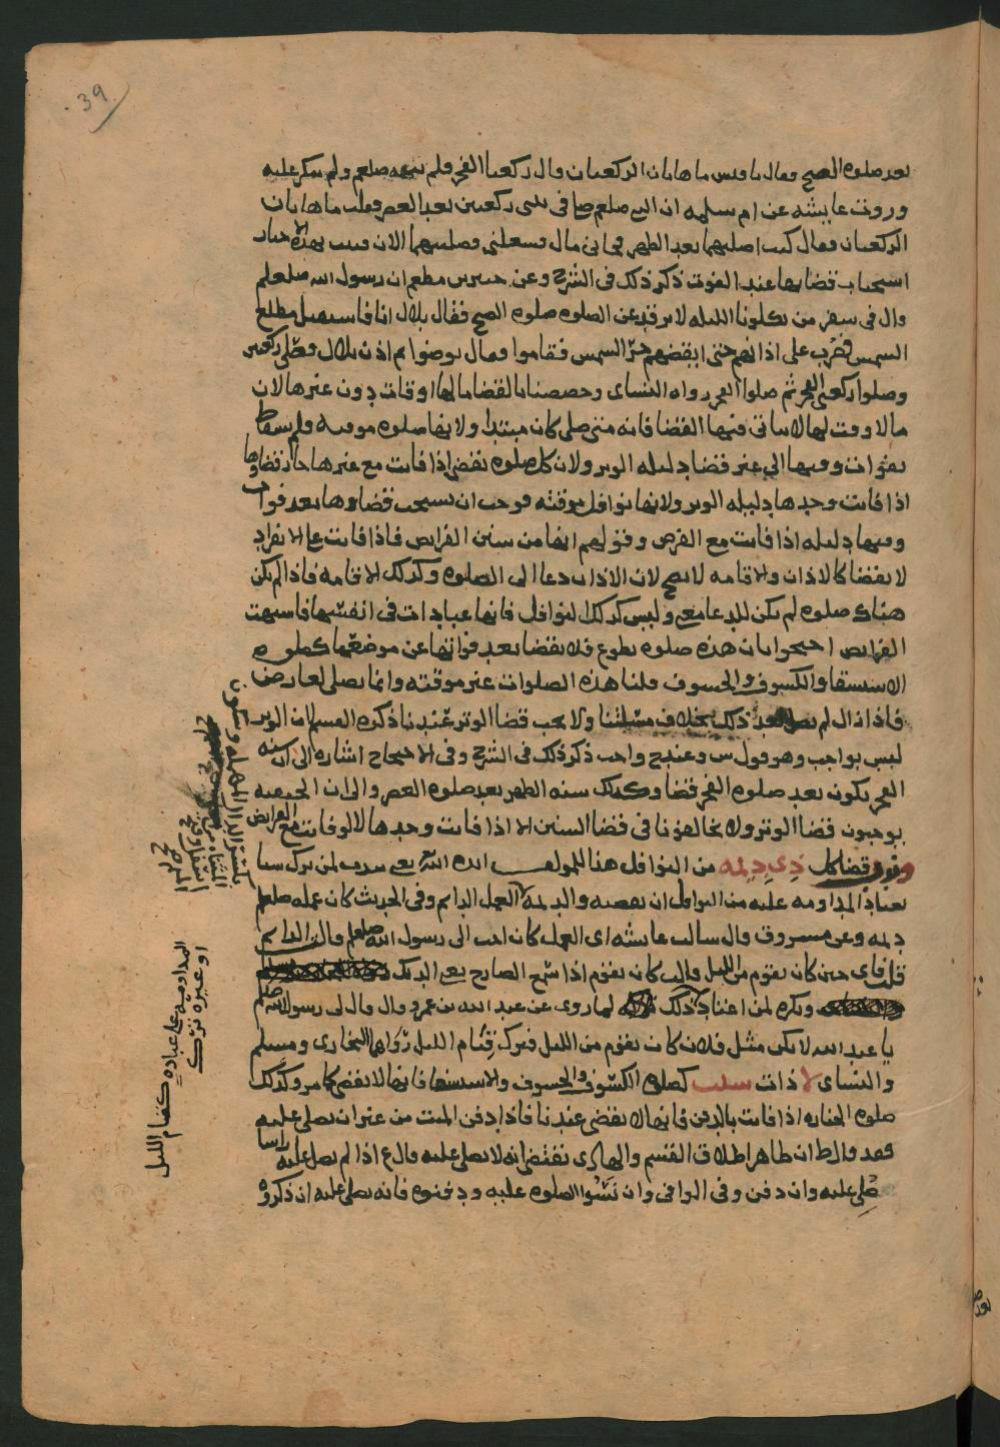 39
بعد صلوه الصبح وقال يا قيس ما هاتان الركعتان قال ركعتا الفجر فلم صلعم ولم ينكر عليه
وروت عايشه عن ام سلمه ان النبي صلعم صلى في بيتي ركعتين بعد العصر فقلت ما هاتان
الركعتان فقال كنت اصليهما بعد الظهر فجاني مال فشغلني فصليتهما الان فثبت بهذه الاخبار
استحباب قضايها عند الفوت ذكر ذلك في الشرح وعن جبير بن مطعم ان رسول الله صلعلم
قال في سفر من يكلونا الليله لا نرقد عن الصلوه صلوه الصبح فقال بلال انا فاستقبل مطلع
الشمس فضرب على اذانهم حتى ايقضهم حر الشمس فقاموا وقال توضوا ثم اذن بلال فصلى ركعتين
وصلوا ركعتي الفجر ثم صلوا الفجر رواه النساى وخصصنا بالقضا ما لها اوقات دون غيرها لان
ما لا وقت لها لا يتاتى فيها القضا فانه متى صلى كان مبتديا ولانها صلوه موقته فلم يسقط
بفوات وقتها الى غير قضا دليله الوتر ولان كل صلوه تقضى اذا فاتت مع غيرها جاز قضاوها
اذا فاتت وحدها دليله الوتر ولانها نوافل موقته فوجب ان يستحب قضاوها بعد فوات
وقتها دليله اذا فاتت مع الفرض وقولهم انها من سنن الفرايض فاذا فاتت على الانفراد
لا تقضا كالاذان والاقامه لا يصح لان الاذان دعا الى الصلوه وكذلك الاقامه فاذا لم يكن
هناك صلوه لم يكن للدعا معنى وليس كذلك النوافل فانها عبادات في انفسها فاشبهت
الفرايض احتجوا بان هذه صلوه تطوع فلا تقضا بعد فواتها عن موضعها كصلوه
الاستسقا والكسوف والخسوف قلنا هذه الصلوات غير موقته وانما تصلى لعارض
فاذا زال لم بعد ذلك بخلاف مسئلتنا ولا يجب قضا الوتر عندنا ذكره لان الوتر
ليس بواجب وهو قول س وعند ح واجب ذكر ذلك في الشرح وفي الاحتجاج اشاره الى ان سنه
الفجر تكون بعد صلوه الفجر قضا وكذلك سنه الظهر بعد صلوه العصر والى ان الحنيفيه
يوجبون قضا الوتر ولا يخالفونا في قضا السنن الا اذا فاتت وحدها لا لو فاتت مع الفرايض
قضا كل ذي ديمه من النوافل هذا للمولف ايده الله يعني يندب لمن ترك شيا
يعتاد المداومه عليه من النوافل ان يقضيه والديمه العمل الدايم وفي الحديث كان عمله صلعم
ديمه وعن مسروق قال سالت عايشه اى العمل كان احب الى رسول الله صلعم قالت الدايم
قلت فاى حين كان يقوم من الليل قالت كان يقوم اذا سمع الصارخ يعني الديك
ويكره لمن اعتاد ذلك تركه لما روى عن عبد الله بن عمرو قال قال لى رسول الله صلعم
يا عبد الله لا تكن مثل فلان كان يقوم من الليل فترك قيام الليل رواهما البخارى ومسلم
والنساى لا ذات سبب كصلوه الكسوف والخسوف والاستسقا فانها لا تقضى كما مر وكذلك
صلوه الجنازه اذا فاتت بالدفن فانها لا تقضى عندنا فاذا دفن الميت من غير ان يصلى عليه
فقد قال ط ان ظاهر اطلاق القسم والهادى يقتضى انه لا يصلى عليه قال ع اذا لم يصل عليه راسا
صلى عليه وان دفن وفي الوافى وان نسوا الصلوه عليه ودفنوه فانه يصلى عليه ان ذكروه
المداومه على عباده كقيام الليل
او غيره ترك